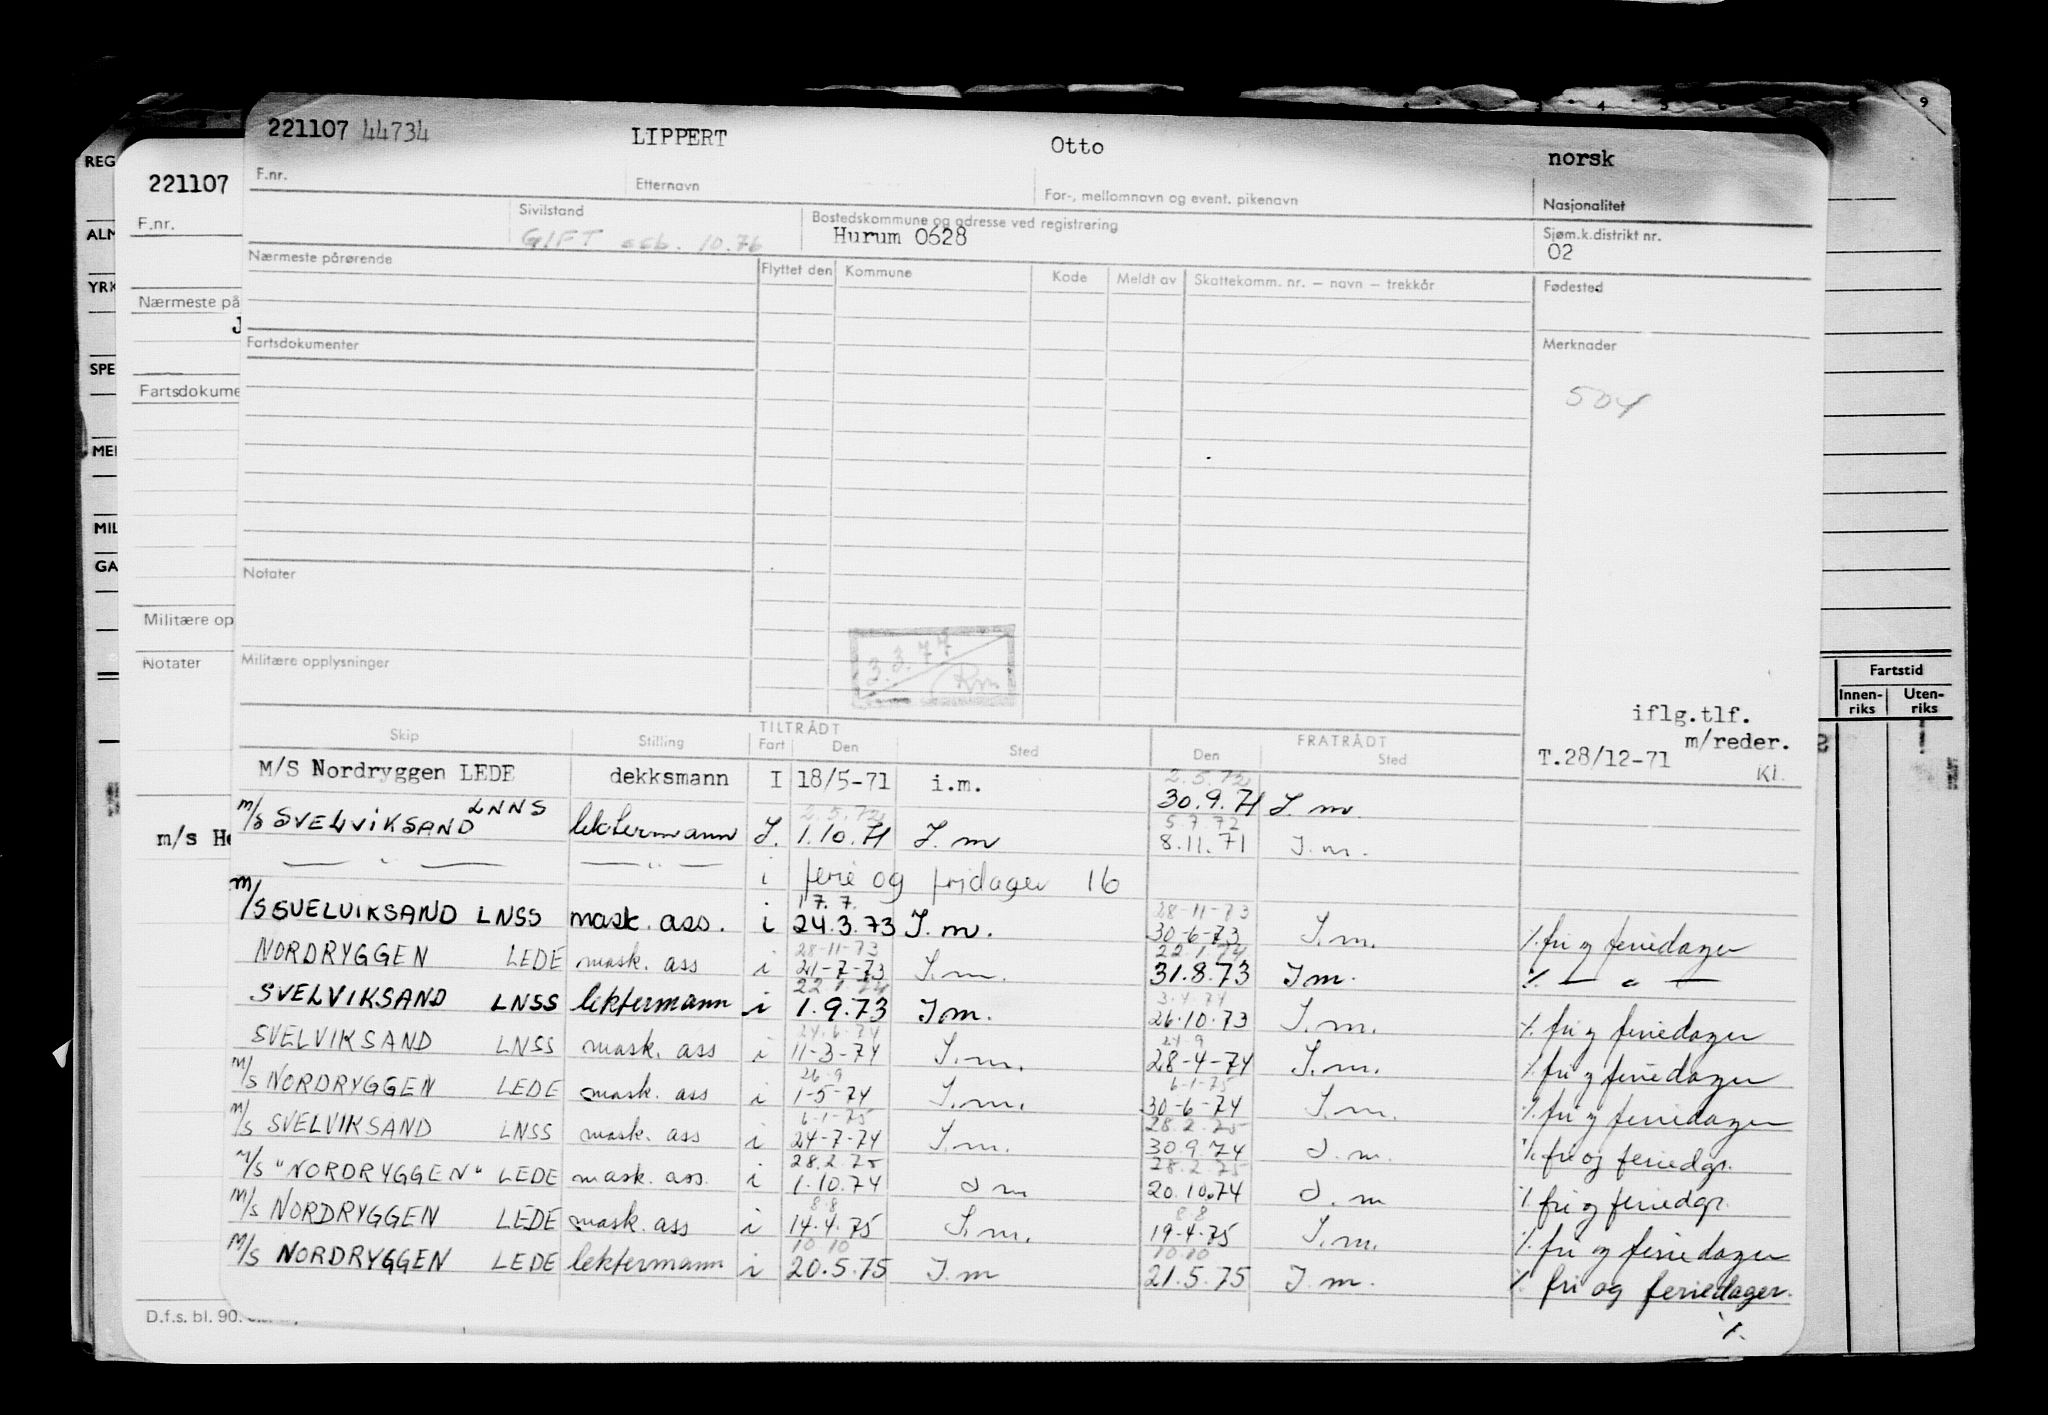 221107 44734 LIPPERT Otto norsk
F.nr. Etternavn For-, mellomnavn og event. pikenavn Nasjonalitet
Sivilstand Bostedskommune og adresse ved registrering Sjøm.k.distrikt nr.
GIFT 10.76 Hurum 0628 02
Nærmeste pårørende Flyttet den Kommune Kode Meldt av Skattekomm. nr. – navn – trekkår Fødested
Fartsdokumenter Merknader
504
Notater
3.3.77
Militære opplysninger
iflg.tlf.
m/reder.
T.28/12-71 Kl.
TILTRÅDT FRATRÅDT
Skip Stilling Fart Den Sted Den Sted
2.5.72
M/S Nordryggen LEDE dekksmann I 18/5-71 i.m. 30.9.71 I.m.
2.5.72 5.7.72
M/S SVELVIKSAND LNNS lektermann I. 1.10.71 I.m 8.11.71 I.m.
— " — — " — i ferie og fridager 16
17.7. 28-11-73
M/S SVELVIKSAND LNSS mask. ass. i 24.3.73 I.m. 30-6-73 I.m. % fri og feriedager
28-11-73 22.1.74
NORDRYGGEN LEDE mask. ass i 21-7-73 I.m. 31.8.73 Im. % — " —
22.1.74 3.4.74
SVELVIKSAND LNSS lektermann i 1.9.73 I.m. 26.10.73 I.m. % fri og feriedager
24.6.74 24.9
SVELVIKSAND LNSS mask. ass i 11-3-74 I.m. 28-4-74 I.m. % fri og feriedager
26.9 6-1-75
M/S NORDRYGGEN LEDE mask. ass i 1-5-74 I.m. 30-6-74 I.m. % fri og feriedager
6-1-75 28.2.75
M/S SVELVIKSAND LNSS mask. ass i 24-7-74 I.m. 30.9.74 I.m. % fri og feriedgr.
28.2.75 28.2.75
M/S "NORDRYGGEN" LEDE mask. ass. i 1.10.74 I m 20.10.74 I.m % fri og feriedgr.
8.8 8.8
M/S NORDRYGGEN LEDE mask. ass i 14.4.75 I.m. 19.4.75 I.m. % fri og feriedager
10.10 10.10
M/S NORDRYGGEN LEDE lektermann i 20.5.75 I.m 21.5.75 I.m. % fri og feriedager.
%
221107
F.nr.
Nærmeste på
J
Fartsdokume
Militære op
Notater
m/s He
D.f.s. bl. 90.
REG
ALM
YRK
SPE
MEI
MIL
GA
3 4 5 6 9
Fartstid
Innen-riks Uten-riks